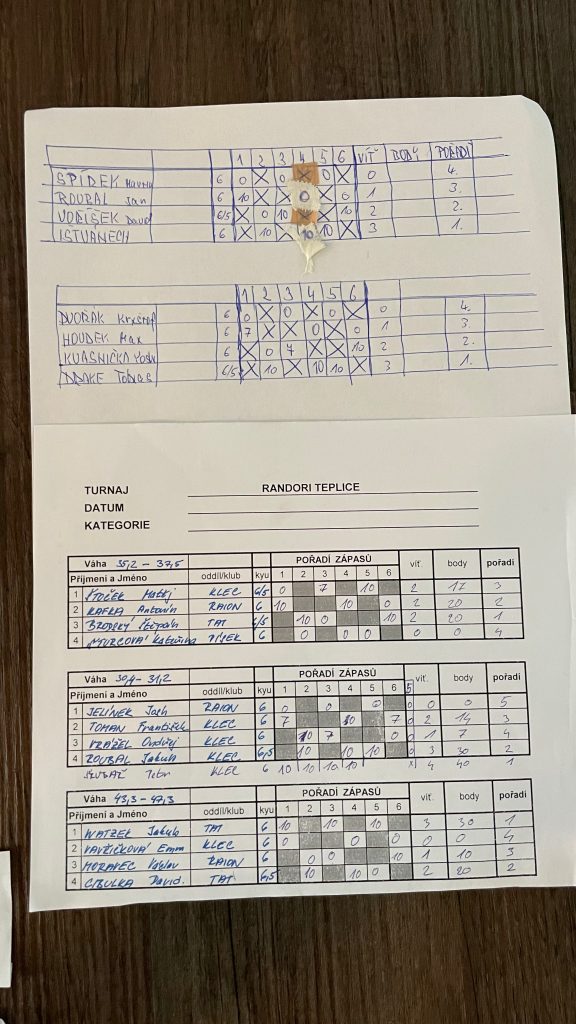 1 2 3 4 5 6 VÍŤ BODÍ POŘADÍ
ŠPIDEK 6 0 X 0 X 0 X 0 4.
ROUBAL Jan 6 10 X X 0 X 0 1 3.
VOŘÍŠEK David 6/5 X 0 10 X X 10 2 2.
ISTVANECH 6 X 10 X 10 10 X 3 1.
1 2 3 4 5 6
DVOŘÁK Kryštof 6 0 X 0 X 0 X 0 4.
HOUDEK Max 6 7 X X 0 X 0 1 3.
KVASNIČKA 6 X 0 7 X X 10 2 2.
DRAKE Tobias 6/5 X 10 X 10 10 X 3 1.
TURNAJ RANDORI TEPLICE
DATUM
KATEGORIE
Váha 35,2 - 37,5 POŘADÍ ZÁPASŮ vít. body pořadí
Příjmení a Jméno oddíl/klub kyu 1 2 3 4 5 6
1 Matěj KLEC 6/5 0 7 10 2 17 3
2 KAFKA Antonín RAION 6 10 10 0 2 20 2
3 BRODSKÝ Štěpán TAT 6/5 10 0 10 2 20 1
4 Kateřina PÍSEK 6 0 0 0 0 0 4
Váha 30,4 - 31,2 POŘADÍ ZÁPASŮ 5 vít. body pořadí
Příjmení a Jméno oddíl/klub kyu 1 2 3 4 5 6
1 JELÍNEK Josh RAION 6 0 0 0 0 0 0 5
2 TOMAN František KLEC 6 7 10 7 0 2 14 3
3 Ondřej KLEC 6 10 7 0 0 1 7 4
4 ROUBAL Jakub KLEC 6,5 10 10 10 0 3 30 2
KLEC 6 10 10 10 10 x 4 40 1
Váha 43,3 - 47,3 POŘADÍ ZÁPASŮ vít. body pořadí
Příjmení a Jméno oddíl/klub kyu 1 2 3 4 5 6
1 WATZEK Jakub TAT 6 10 10 10 3 30 1
2 VAVŘIČKOVÁ Emm KLEC 6 0 0 0 0 0 4
3 MORAVEC Václav RAION 6 0 0 10 1 10 3
4 CIBULKA David. TAT 6,5 10 10 0 2 20 2